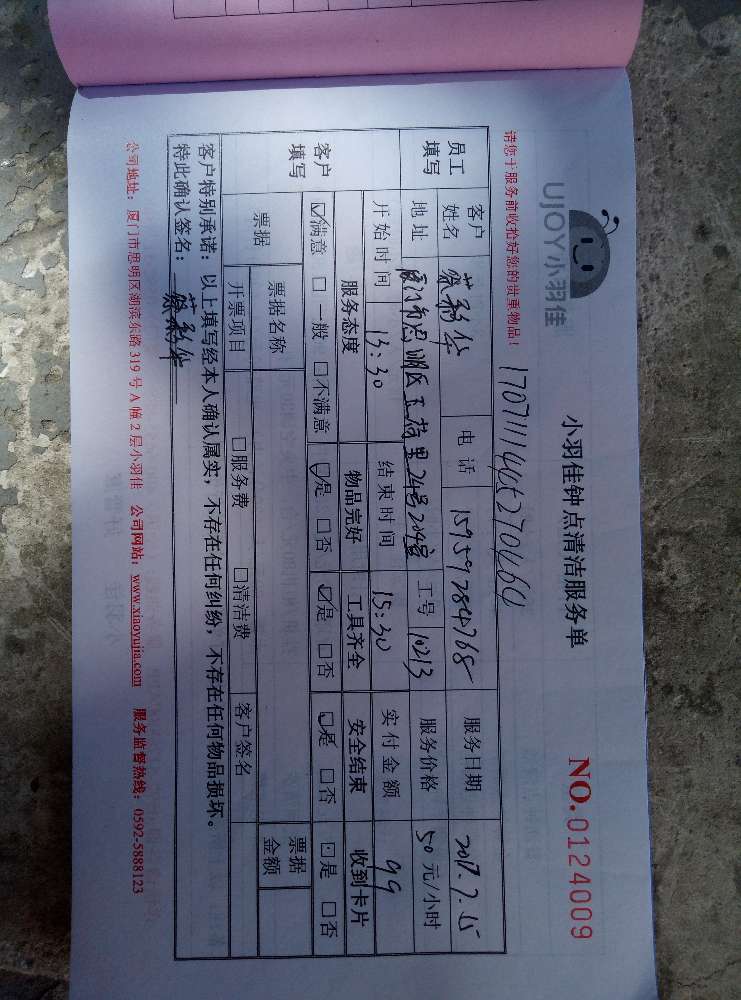 UJOY小羽佳
小羽佳钟点清洁服务单
NO.0124009
请您于服务前收拾好您的贵重物品！
1707111445270464
员工填写 客户姓名 电话 15959784768 服务日期 2017.7.15
地址 厦门市思明区玉荷里24号204室 工号 10213 服务价格 50元/小时
开始时间 13:30 结束时间 15:30 实付金额 99
客户填写 服务态度 物品完好 工具齐全 安全结束 收到卡片
☑满意 □一般 □不满意 ☑是 □否 ☑是 □否 ☑是 □否 ☑是 □否
票据 票据名称 票据金额
开票项目 □服务费 □清洁费 客户签名
客户特别承诺：以上填写经本人确认属实，不存在任何纠纷，不存在任何物品损坏。
特此确认签名：
公司地址：厦门市思明区湖滨东路319号A幢2层小羽佳 公司网站：www.xiaoyujia.com 服务监督热线：0592-5888123